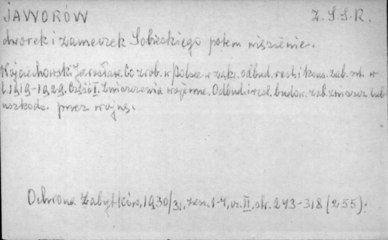 JAWORÓW Z.S.S.R.
dworek i zameczek Sobieskiego potem zniszczenie.
Wojciechowski Jarosław. Co zrob. w Polsce w zakr. odbud. rest. i kons. zab. szt. w
l. 1919-1929. Część I. Zniszczenia wojenne. Odbud. i rest. budow. zab. zniszcz. lub
uszkodz. przez wojnę.
Ochrona Zabytków, 1930/31, zesz. 1-4, cz. II, str. 243-318 (255).